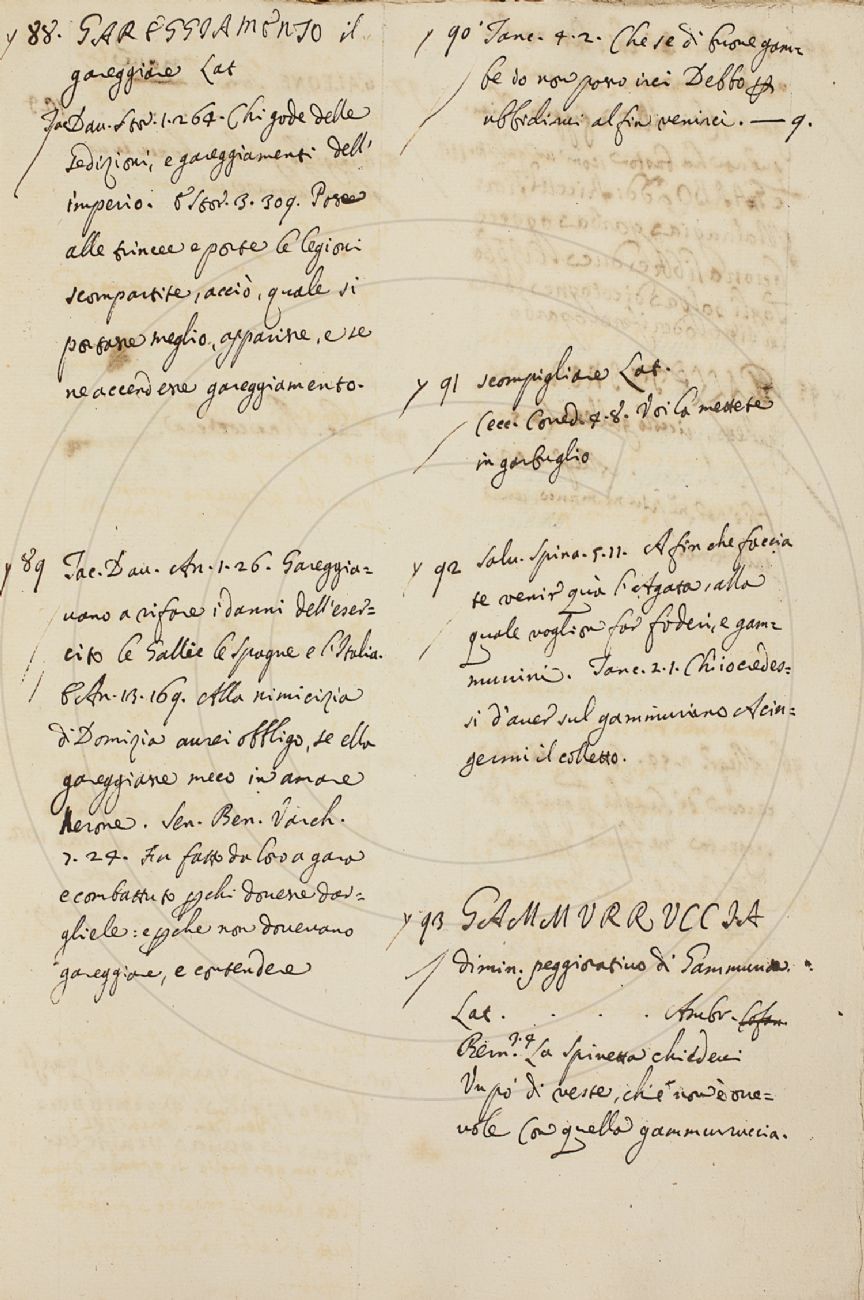 88. GAREGGIAMENTO il
gareggiare Lat
Tac. Dav. Stor. 1. 264. Chi gode delle
sedizioni, e gareggiamenti dell'
imperio. E Stor. 3. 309. Pose
alle trincee e porte le legioni
scompartite, acciò, quale si
portasse meglio, apparisse, e se
ne accendesse gareggiamento.
89 Tac. Dav. An. 1. 26. Gareggia=
vano a rifare i danni dell'eser=
cito le Gallie le Spagne e l'Italia.
E An. 13. 169. Alla nimicizia
di Domizia aurei obbligo, se ella
gareggiasse meco in amare
Nerone. Sen. Ben. Varch.
7. 24. Fu fatto da loro a gara
e combattuto chi dovesse dar=
gliele: e che non dovevano
gareggiare, e contendere
90 Tanc. 4. 2. Che se di buone gam=
be io non posso irci Debbo
ubbidirvi al fin venirci. — 9.
91 scompigliare Lat.
Cecc. Comed. 4. 8. Voi la mettete
in garbuglio
92 Salv. Spina. 5. 11. A fin che faccia
te venir quà l'Agata, alla
quale voglion far foderi, e gam=
murrini. Tanc. 2. 1. Ch'io credes=
si d'aver sul gammurrano A cin=
germi il colletto.
93 GAMMURRUCCIA
dimin. peggiorativo di Gammurra.
Lat. . . . . Ambr.
Bern. 3. 4 La Spinetta chiedevi
Un pò di veste, che non è ore=
vole Con quella gammurruccia.